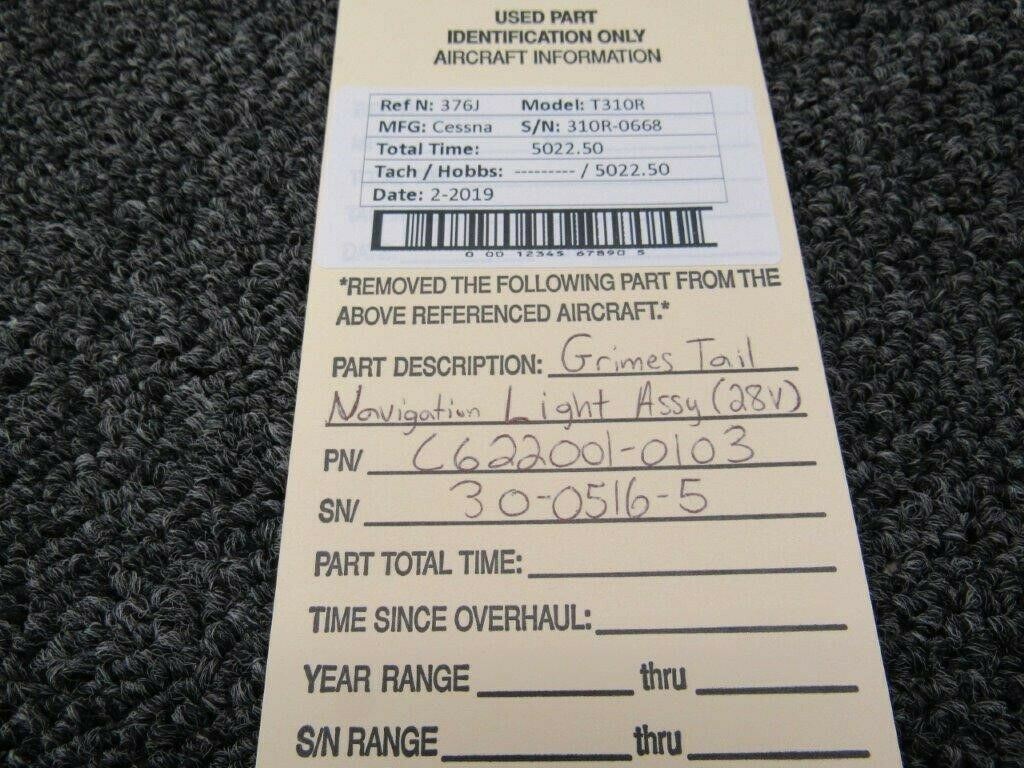 USED PART
IDENTIFICATION ONLY
AIRCRAFT INFORMATION
Ref N: 376J Model: T310R
MFG: Cessna S/N: 310R-0668
Total Time: 5022.50
Tach / Hobbs: --------- / 5022.50
Date: 2-2019
0 00 12345 67890 5
*REMOVED THE FOLLOWING PART FROM THE
ABOVE REFERENCED AIRCRAFT.*
PART DESCRIPTION: Grimes Tail
Navigation Light Assy (28V)
PN/ C622001-0103
SN/ 30-0516-5
PART TOTAL TIME:
TIME SINCE OVERHAUL:
YEAR RANGE thru
S/N RANGE thru